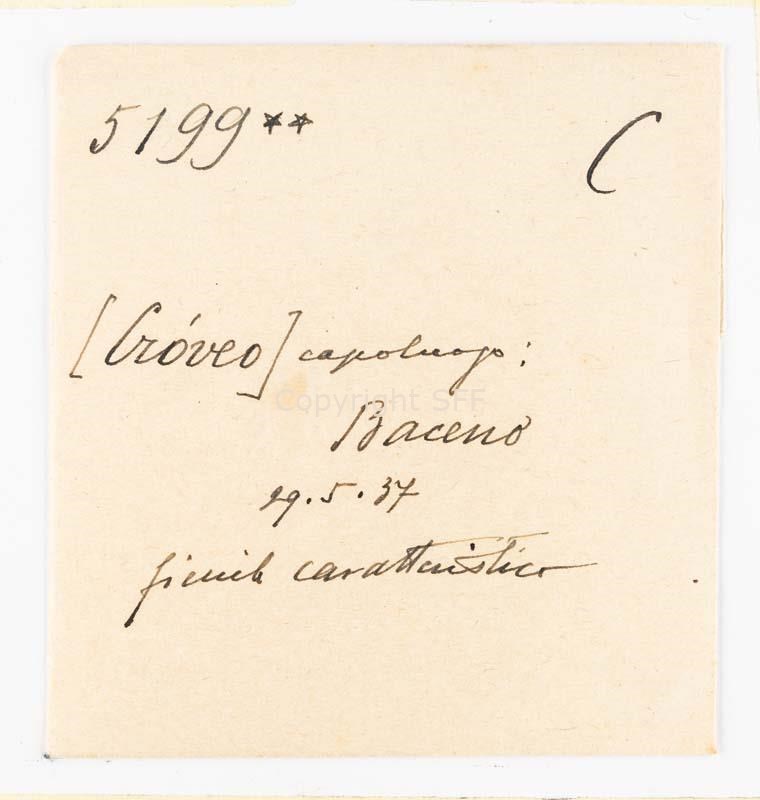 5199** C
[Cróveo] capoluogo:
Copyright SFF
Baceno
29.5.37
fienile caratteristico